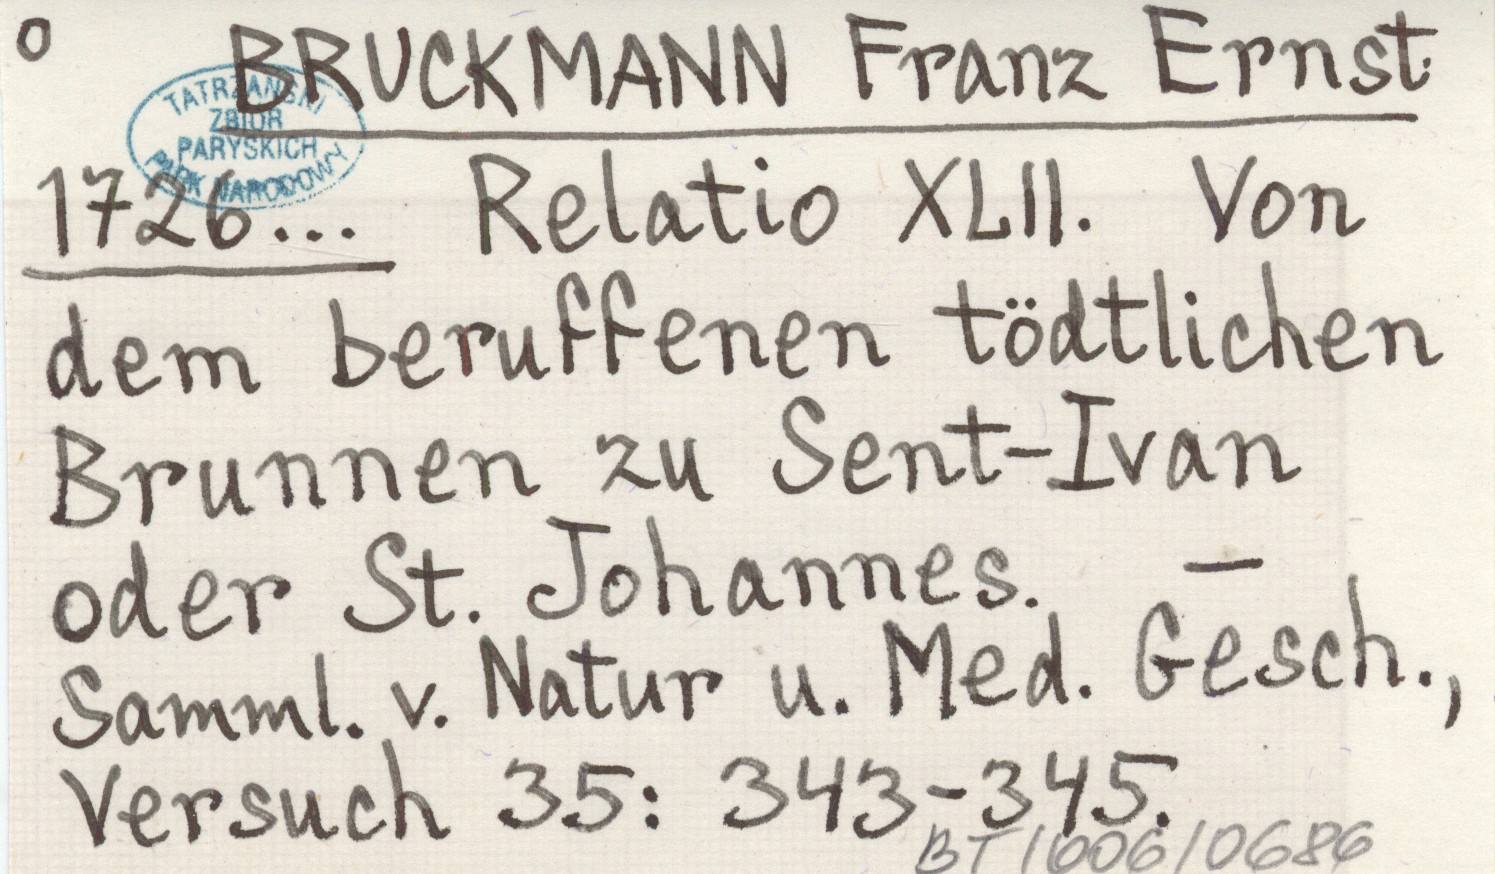 o BRUCKMANN Franz Ernst
TATRZAŃSKI
ZBIÓR
PARYSKICH
PARK NARODOWY
1726... Relatio XLII. Von
dem beruffenen tödtlichen
Brunnen zu Sent-Ivan
oder St. Johannes. —
Samml. v. Natur u. Med. Gesch.,
Versuch 35: 343-345.
BT/006/0686